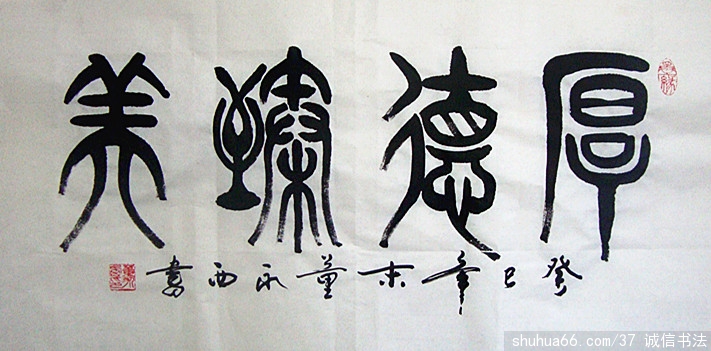 厚德臻美
癸巳年末董永西書
shuhua66.com/37 诚信书法